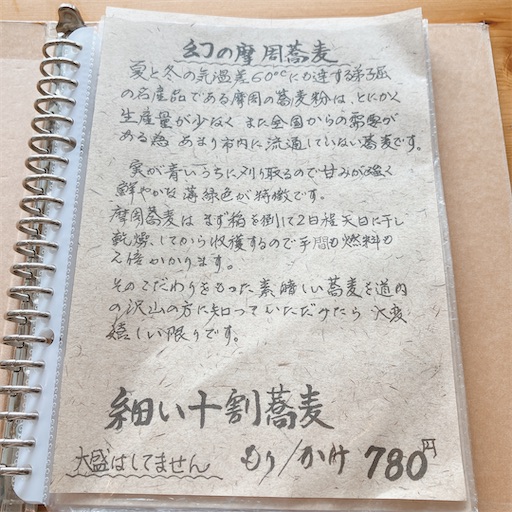 幻の摩周蕎麦
夏と冬の気温差60℃にも達する弟子屈
の名産品である摩周の蕎麦粉は、とにかく
生産量が少なく また全国からの需要が
ある為 あまり市内に流通していない蕎麦です。
実が青いうちに刈り取るので甘みが強く
鮮やかな薄緑色が特徴です。
摩周蕎麦は まず稲を倒して2日程天日に干し
乾燥してから収穫するので手間も燃料も
2倍かかります。
そのこだわりをもった素晴しい蕎麦を道内
の沢山の方に知っていただけたら 大変
嬉しい限りです。
細い十割蕎麦
大盛はしてません もり/かけ 780円